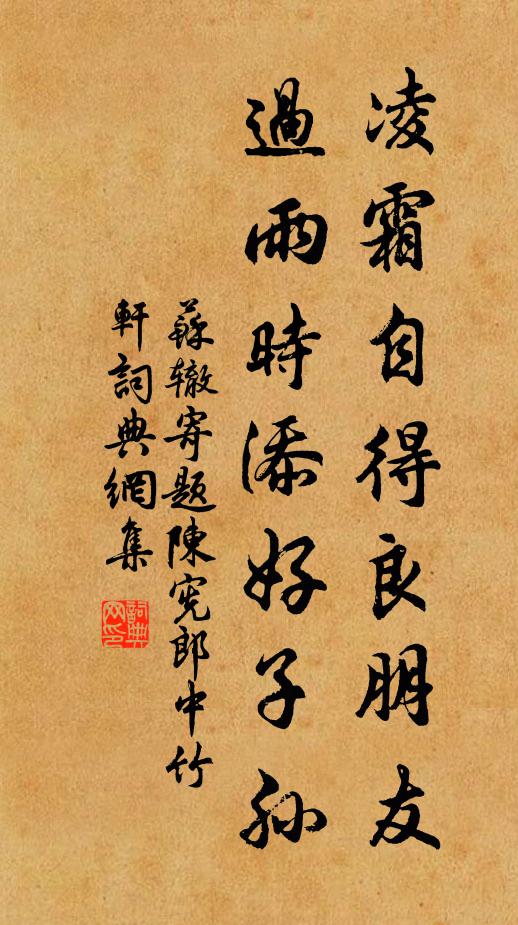 凌霜自得良朋友
過雨時添好子孫
蘇辙寄题陳憲郎中竹
軒詞典網集
詞典
网印